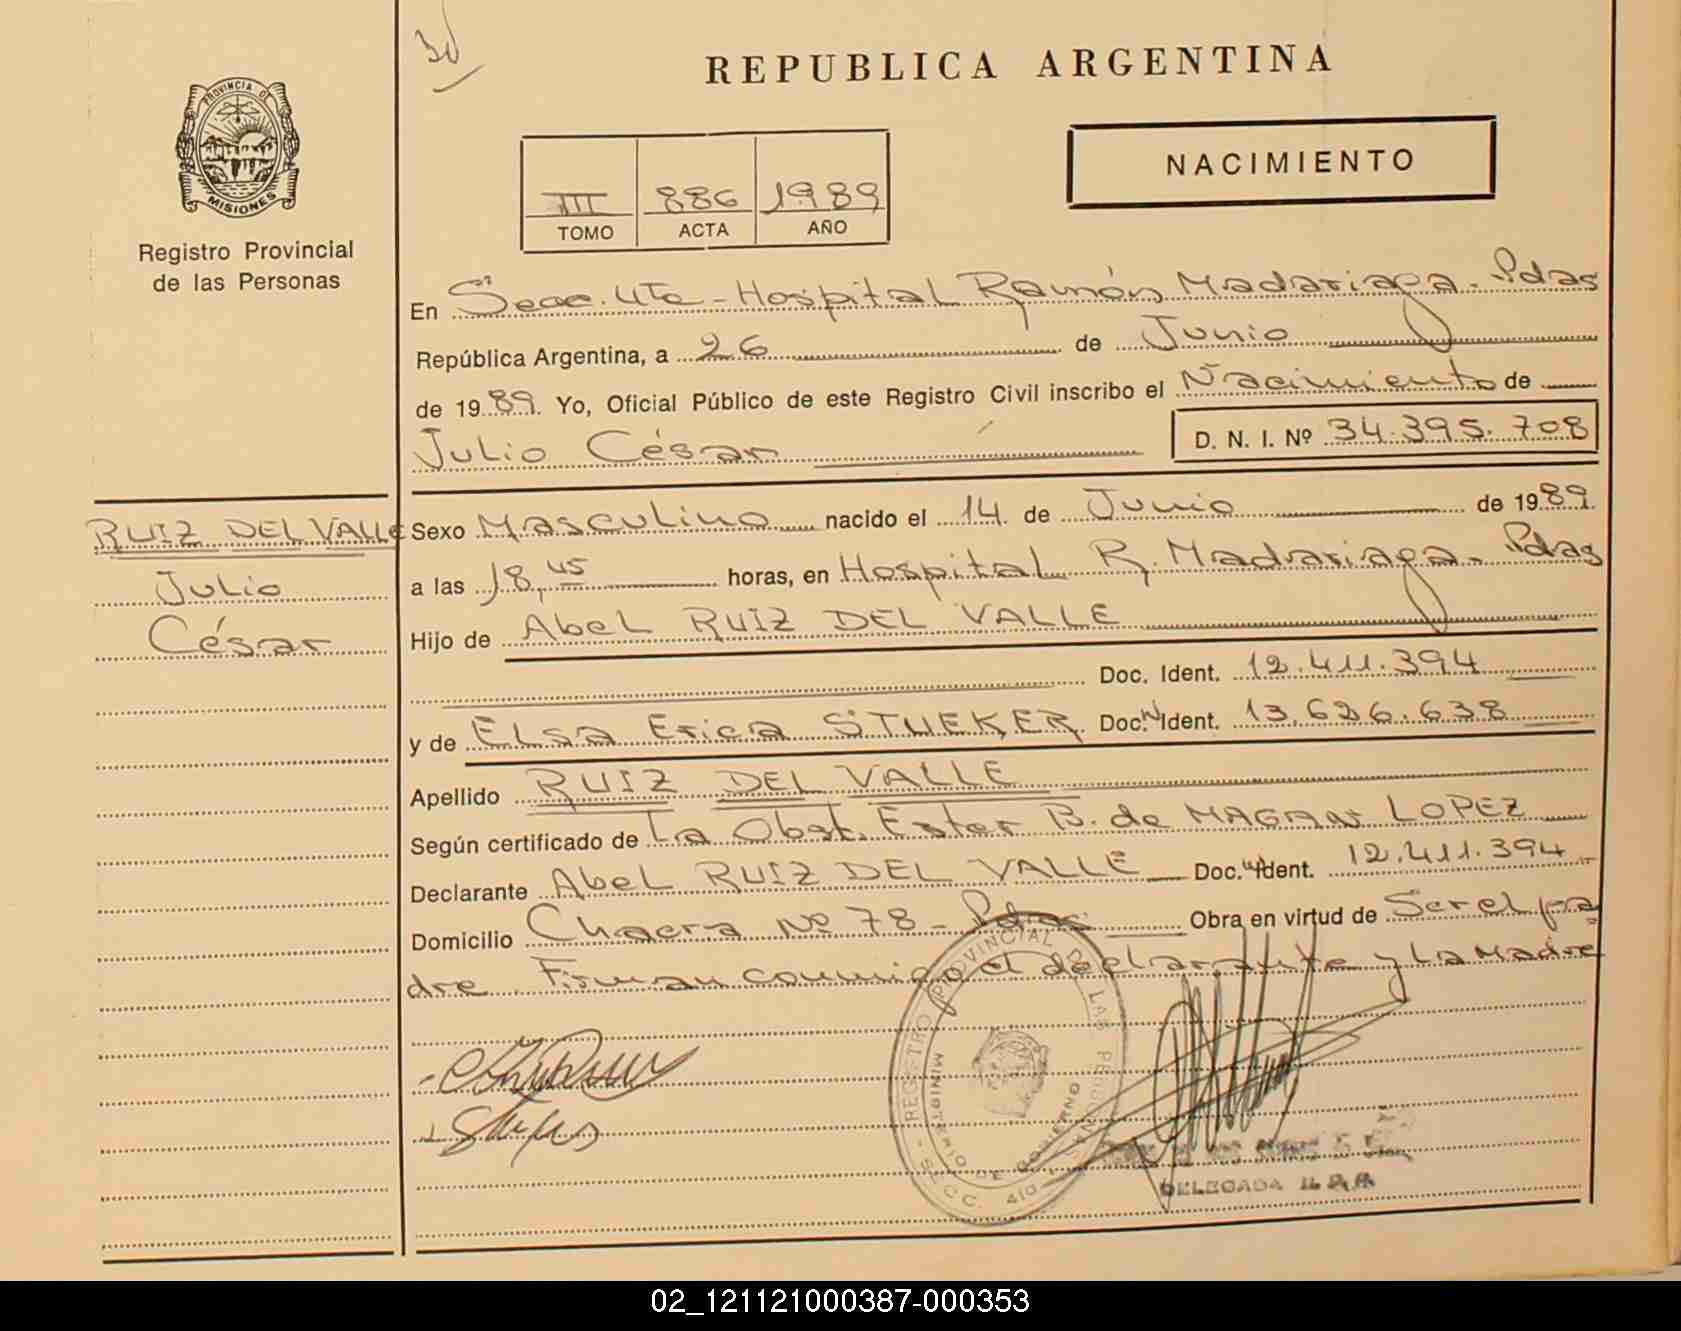 REPUBLICA ARGENTINA
PROVINCIA DE
MISIONES
Registro Provincial
de las Personas
NACIMIENTO
III 886 1989
TOMO ACTA AÑO
En Secc. 4ta - Hospital Ramón Madariaga - Pdas
República Argentina, a 26 de Junio
de 1989. Yo, Oficial Público de este Registro Civil inscribo el Nacimiento de
Julio César D. N. I. Nº 34.395.708
RUIZ DEL VALLE
Julio
César
Sexo Masculino nacido el 14 de Junio de 1989.
a las 18,45 horas, en Hospital R. Madariaga - Pdas
Hijo de Abel RUIZ DEL VALLE
Doc. Ident. 12.411.394
y de ELsa Erica STUEKER Doc. Ident. 13.626.638
Apellido RUIZ DEL VALLE
Según certificado de La Obst. Ester B. de MAGAN LOPEZ
Declarante Abel RUIZ DEL VALLE Doc. Ident. 12.411.394
Domicilio Chacra Nº 78 - Pdas. Obra en virtud de Ser el pa
dre. Firman conmigo el declarante y La Madre
REGISTRO PROVINCIAL DE LAS PERSONAS
MINISTERIO DE GOBIERNO
SECC. 4ta
DELEGADA
02_121121000387-000353